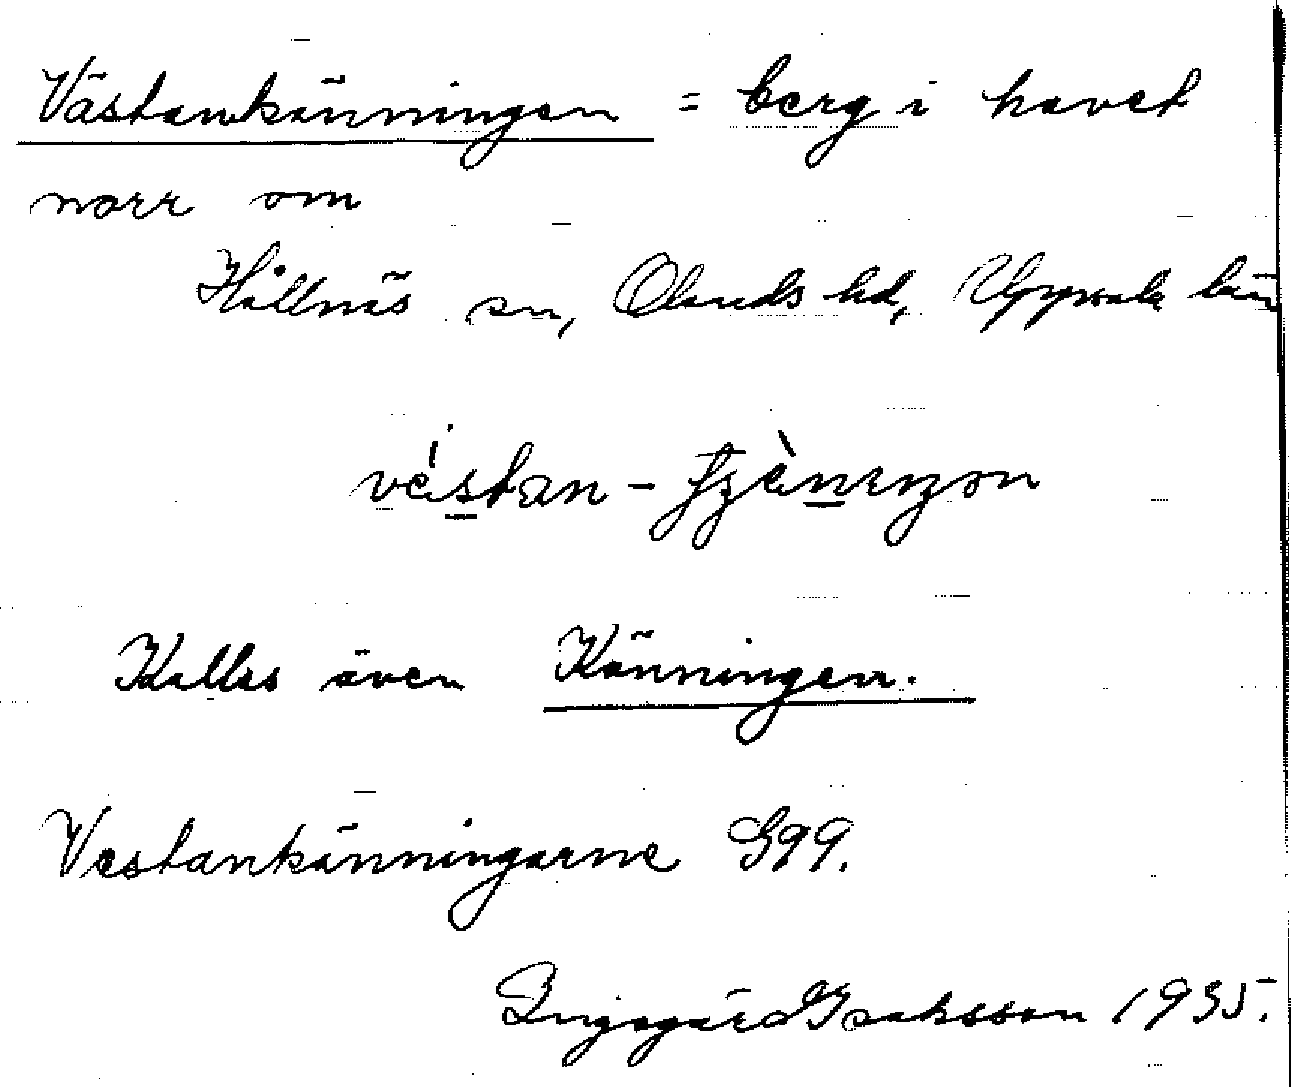 Västankänningen = berg i havet
norr om
Hållnäs sn, Olands hd, Uppsala län
Kallas även Känningen.
Vestankänningarne S99.
Ingegärd Isaksson 1935.